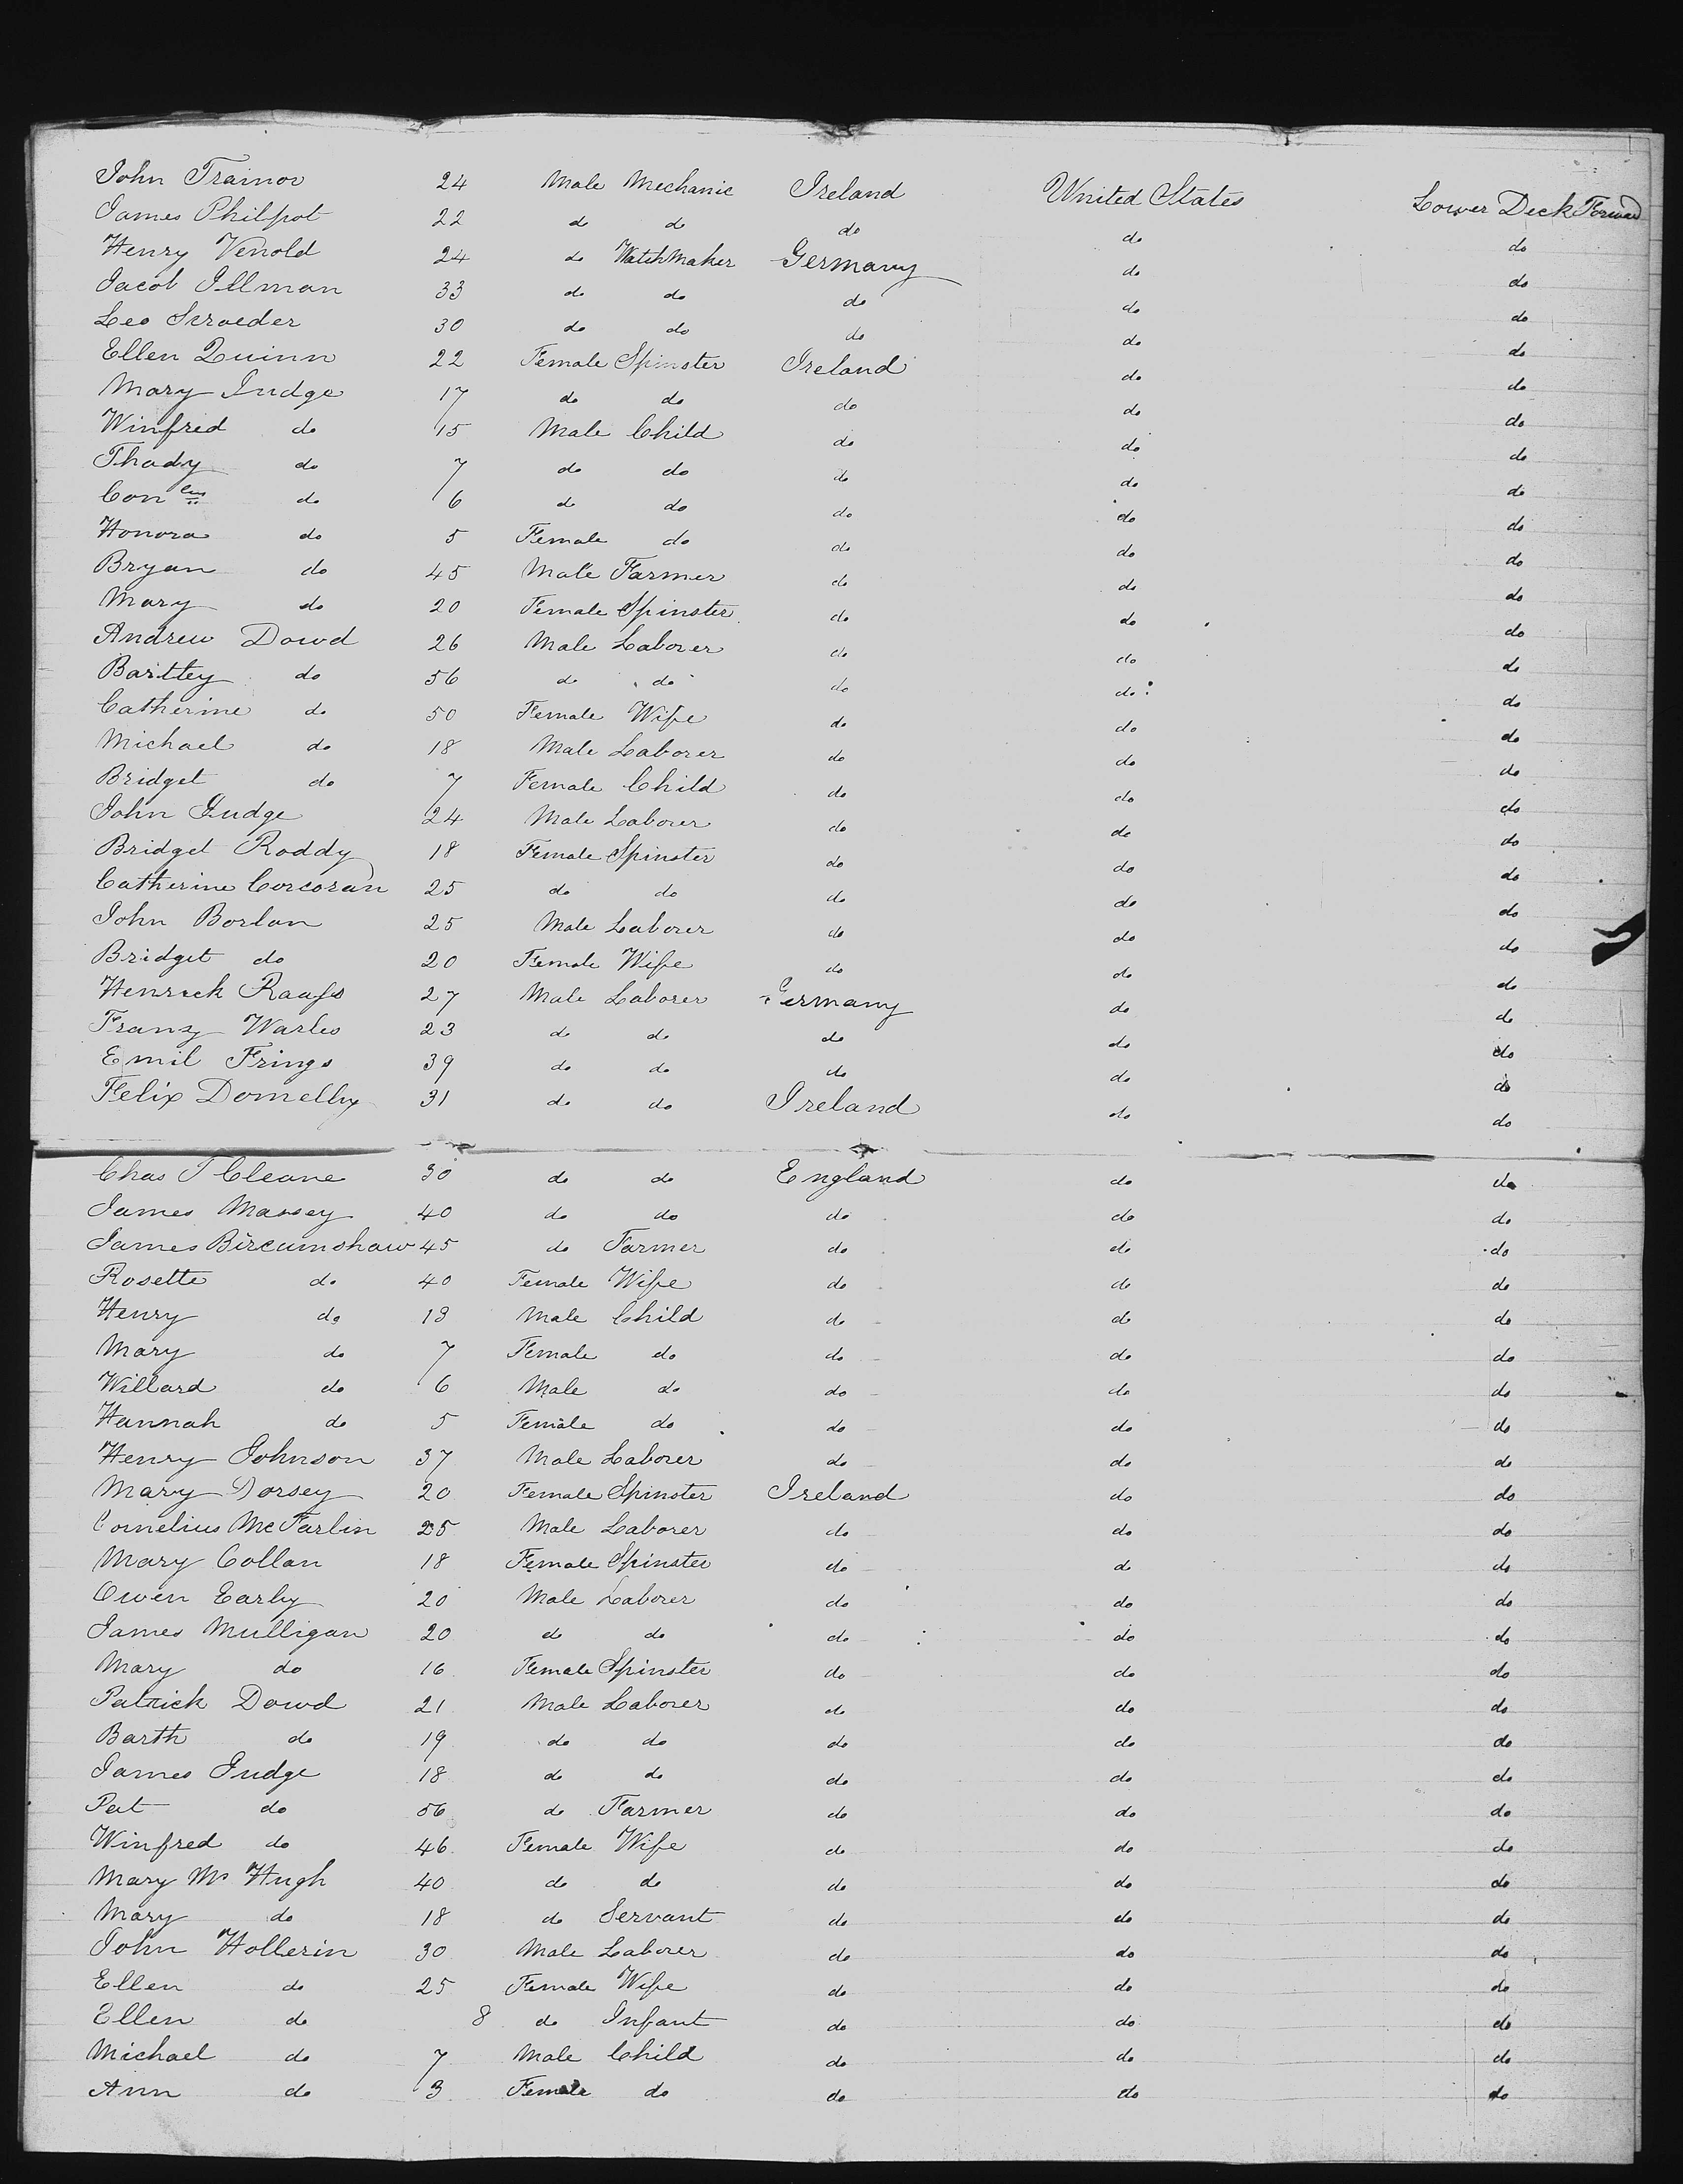 John Trainor 24 Male Mechanic Ireland United States Lower Deck Forward
James Philpot 22 do do do do do
Henry Venold 24 do Watchmaker Germany do do
Jacob Illman 33 do do do do do
Leo Scroeder 30 do do do do do
Ellen Quinn 22 Female Spinster Ireland do do
Mary Judge 17 do do do do do
Winfred do 15 Male Child do do do
Thady do 7 do do do do do
Con lius do 6 do do do do do
Honora do 5 Female do do do do
Bryan do 45 Male Farmer do do do
Mary do 20 Female Spinster do do do
Andrew Dowd 26 Male Laborer do do do
Barttey do 56 do do do do do
Catherine do 50 Female Wife do do do
Michael do 18 Male Laborer do do do
Bridget do 7 Female Child do do do
John Judge 24 Male Laborer do do do
Bridget Roddy 18 Female Spinster do do do
Catherine Corcoran 25 do do do do do
John Borlan 25 Male Laborer do do do
Bridget do 20 Female Wife do do do
Henrick Raafs 27 Male Laborer Germany do do
Franz Warles 23 do do do do do
Emil Frings 39 do do do do do
Felix Donnelly 31 do do Ireland do do
Chas T Cleane 30 do do England do do
James Massey 40 do do do do do
James Bircumshaw 45 do Farmer do do do
Rosette do 40 Female Wife do do do
Henry do 13 Male Child do do do
Mary do 7 Female do do do do
Willard do 6 Male do do do do
Hannah do 5 Female do do do do
Henry Johnson 37 Male Laborer do do do
Mary Dorsey 20 Female Spinster Ireland do do
Cornelius McFarlin 25 Male Laborer do do do
Mary Collan 18 Female Spinster do do do
Owen Early 20 Male Laborer do do do
James Mulligan 20 do do do do do
Mary do 16 Female Spinster do do do
Patrick Dowd 21 Male Laborer do do do
Barth do 19 do do do do do
James Judge 18 do do do do do
Pat do 56 do Farmer do do do
Winfred do 46 Female Wife do do do
Mary Mc Hugh 40 do do do do do
Mary do 18 do Servant do do do
John Hollerin 30 Male Laborer do do do
Ellen do 25 Female Wife do do do
Ellen do 8 do Infant do do do
Michael do 7 Male Child do do do
Ann do 3 Female do do do do